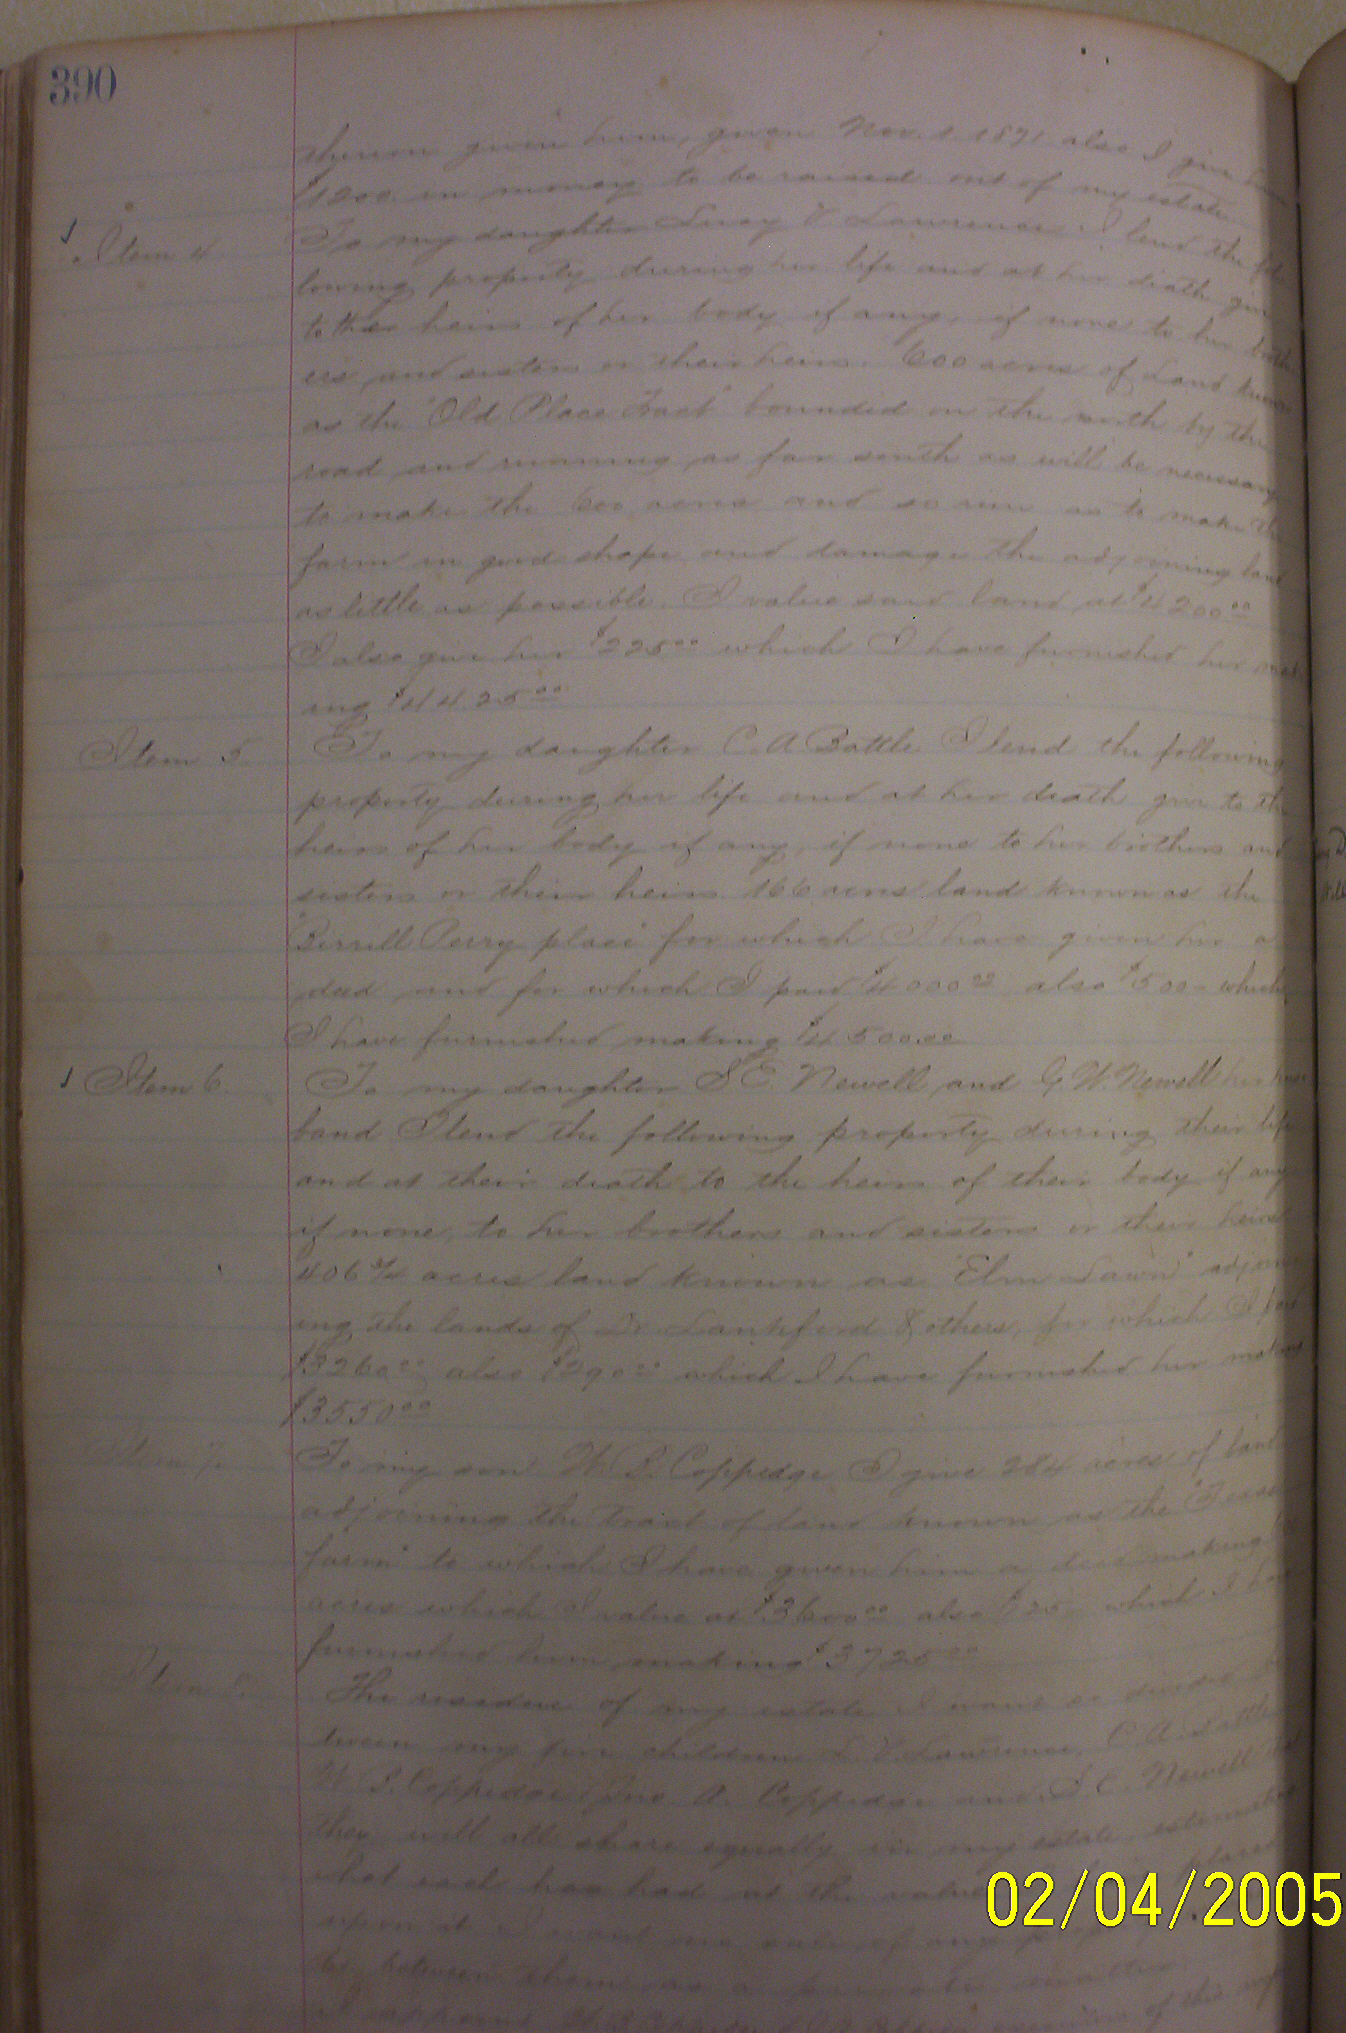 390
thereon given him, given Nov. 1 1891 also I give him
$1200. in money to be raised out of my estate.
Item 4 To my daughter Lucy V Lawrence I lend the fol
lowing property during her life and at her death give
to the heirs of her body if any, if none to her broth
ers and sisters or their heirs. 600 acres of Land known
as the "Old Place Tract" bounded on the north by the
road and running as far south as will be necessary
to make the 600 acres and so run as to make the
farm in good shape and damage the adjoining land
as little as possible. I value said land at $4200.00
I also give her $225.00 which I have furnished her mak
ing $4425.00
Item 5 To my daughter C. A. Battle I lend the following
property during her life and at her death give to the
heirs of her body if any, if none to her brothers and
sisters or their heirs 166 acres land known as the
"Birrell Perry place" for which I have given her a
deed and for which I paid $4000.00 also $500- which
I have furnished making $4500.00
Item 6. To my daughter S. E. Newell and G. W. Newell her hus
band I lend the following property during their life
and at their death to the heirs of their body if any
if none, to her brothers and sisters or their heirs
406 3/4 acres land known as "Elm Lawn" adjoin
ing the lands of Dr Lankford & others, for which I paid
$3260.00 also $290.00 which I have furnished her making
$3550.00
Item 7. To my son W. B. Coppedge I give 284 acres of land
adjoining the tract of land known as the
farm" to which I have given him a deed making
acres which I value at $3600.00 also $125- which I have
furnished him making $3725.00
Item 8. The residue of my estate I want so divided be
tween my five children L. V. Lawrence, C. A. Battle
W. B. Coppedge, Jno. A. Coppedge and S. E. Newell that
they will all share equally in my estate, estimating
what each has had at the value placed
upon it. I want no sale of any
between them
I appoint W. B. Coppedge of this my
02/04/2005